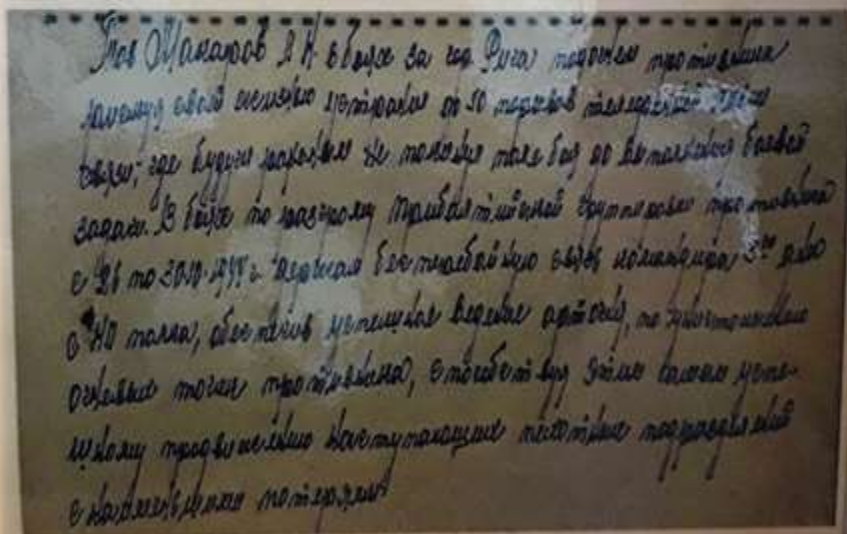 Тов Макаров А Н в боях за гор Рига под огнем противника
рискуя своей жизнью устранил до 50 порывов телефонной линии
связи, где будучи раненым не покинул поле боя до выполнения боевой
задачи. В боях по разгрому Прибалтийской группировки противника
с 26 по 30.10.1944 г. держал бесперебойную связь командира 3го д-на
с НП полка, обеспечив успешное ведение артогня, по уничтожению
огневых точек противника, способствуя этим самым успе-
шному продвижению наступающих пехотных подразделений
с наименьшими потерями